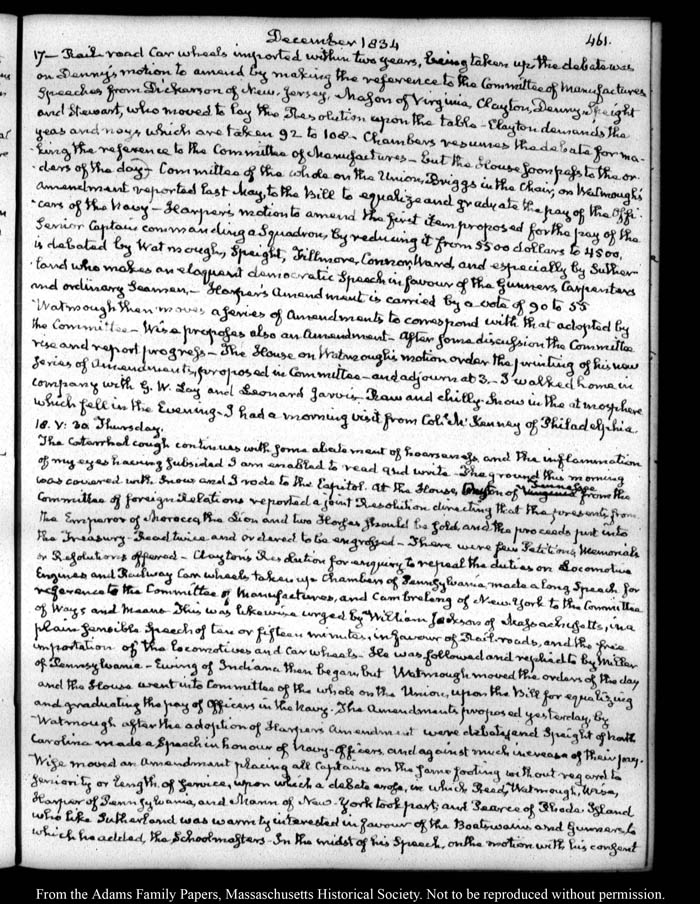 December 1834
461.
17— Rail road Car wheels imported within two years, being taken up the debate was
on Denny's motion to amend by making the reference to the Committee of Manufactures
Speeches from Dickerson of New Jersey, Mason of Virginia, Clayton, Denny, Speight
and Stewart, who moved to lay the Resolution upon the table— Clayton demands the
yeas and nays which are taken 92 to 108— Chambers resumes the debate for ma-
king the reference to the Committee of Manufactures— but the House soon pass to the or-
ders of the day— Committee of the whole on the Union, Briggs in the Chair, on Watmough's
Amendment reported last May, to the Bill to equalize and graduate the pay of the Offi-
cers of the Navy— Harper's motion to amend the first item proposed for the pay of the
Senior Captain commanding a Squadron, by reducing it from 5500 dollars to 4500,
is debated by Watmough, Speight, Fillmore, Connor, Ward, and especially by Suther-
land who makes an eloquent democratic Speech in favour of the Gunners, Carpenters
and ordinary Seamen,— Harper's Amendment is carried by a vote of 90 to 55
Watmough then moves a series of Amendments to correspond with that adopted by
the Committee— Wise proposes also an Amendment— After some discussion the Committee
rise and report progress— The House on Watmough's motion order the printing of his new
Series of Amendments, proposed in Committee—and adjourn at 3.— I walked home in
company with G. W. Lay and Leonard Jarvis— Raw and chilly. Snow in the atmosphere
which fell in the Evening— I had a morning visit from Coll. McKenney of Philadelphia.
18. V: 30 Thursday.
The Catarrhal cough continues with some abatement of hoarseness, and the inflammation
of my eyes having subsided I am enabled to read and write— The ground this morning
was covered with Snow and I rode to the Capitol. At the House, of Virginia Tennessee from the
Committee of foreign Relations reported a joint Resolution directing that the presents from
the Emperor of Morocco, the Lion and two Horses should be sold, and the proceeds put into
the Treasury— Read twice and ordered to be engrossed— There were few Petitions, Memorials
or Resolutions offered— Clayton's Resolution for enquiry to repeal the duties on Locomotive
Engines and Railway Car wheels taken up— Chambers of Pennsylvania made a long Speech for
reference to the Committee of Manufactures, and Cambreleng of New York to the Committee
of Ways and Means— This was likewise urged by William Jackson of Massachusetts, in a
plain sensible Speech of ten or fifteen minutes, in favour of Railroads, and the free
importation of the locomotives and Car wheels— He was followed and replied to by Miller
of Pennsylvania— Ewing of Indiana then began but Watmough moved the orders of the day
and the House went into Committee of the whole on the Union, upon the Bill for equalizing
and graduating the pay of Officers in the Navy. The Amendments proposed yesterday by
Watmough after the adoption of Harper's Amendment were debated, and Speight of North
Carolina made a Speech in honour of Navy-Officers, and against much increase of their pay.
Wise moved an Amendment placing all Captains on the same footing without regard to
Seniority or length of Service, upon which a debate arose, in which Reed, Watmough, Wise,
Harper of Pennsylvania, and Mann of New-York took part, and Pearce of Rhode Island
who like Sutherland was warmly interested in favour of the Boatswains and Gunners, to
which he added, the Schoolmasters— In the midst of his Speech, on the motion with his consent
From the Adams Family Papers, Massachusetts Historical Society. Not to be reproduced without permission.